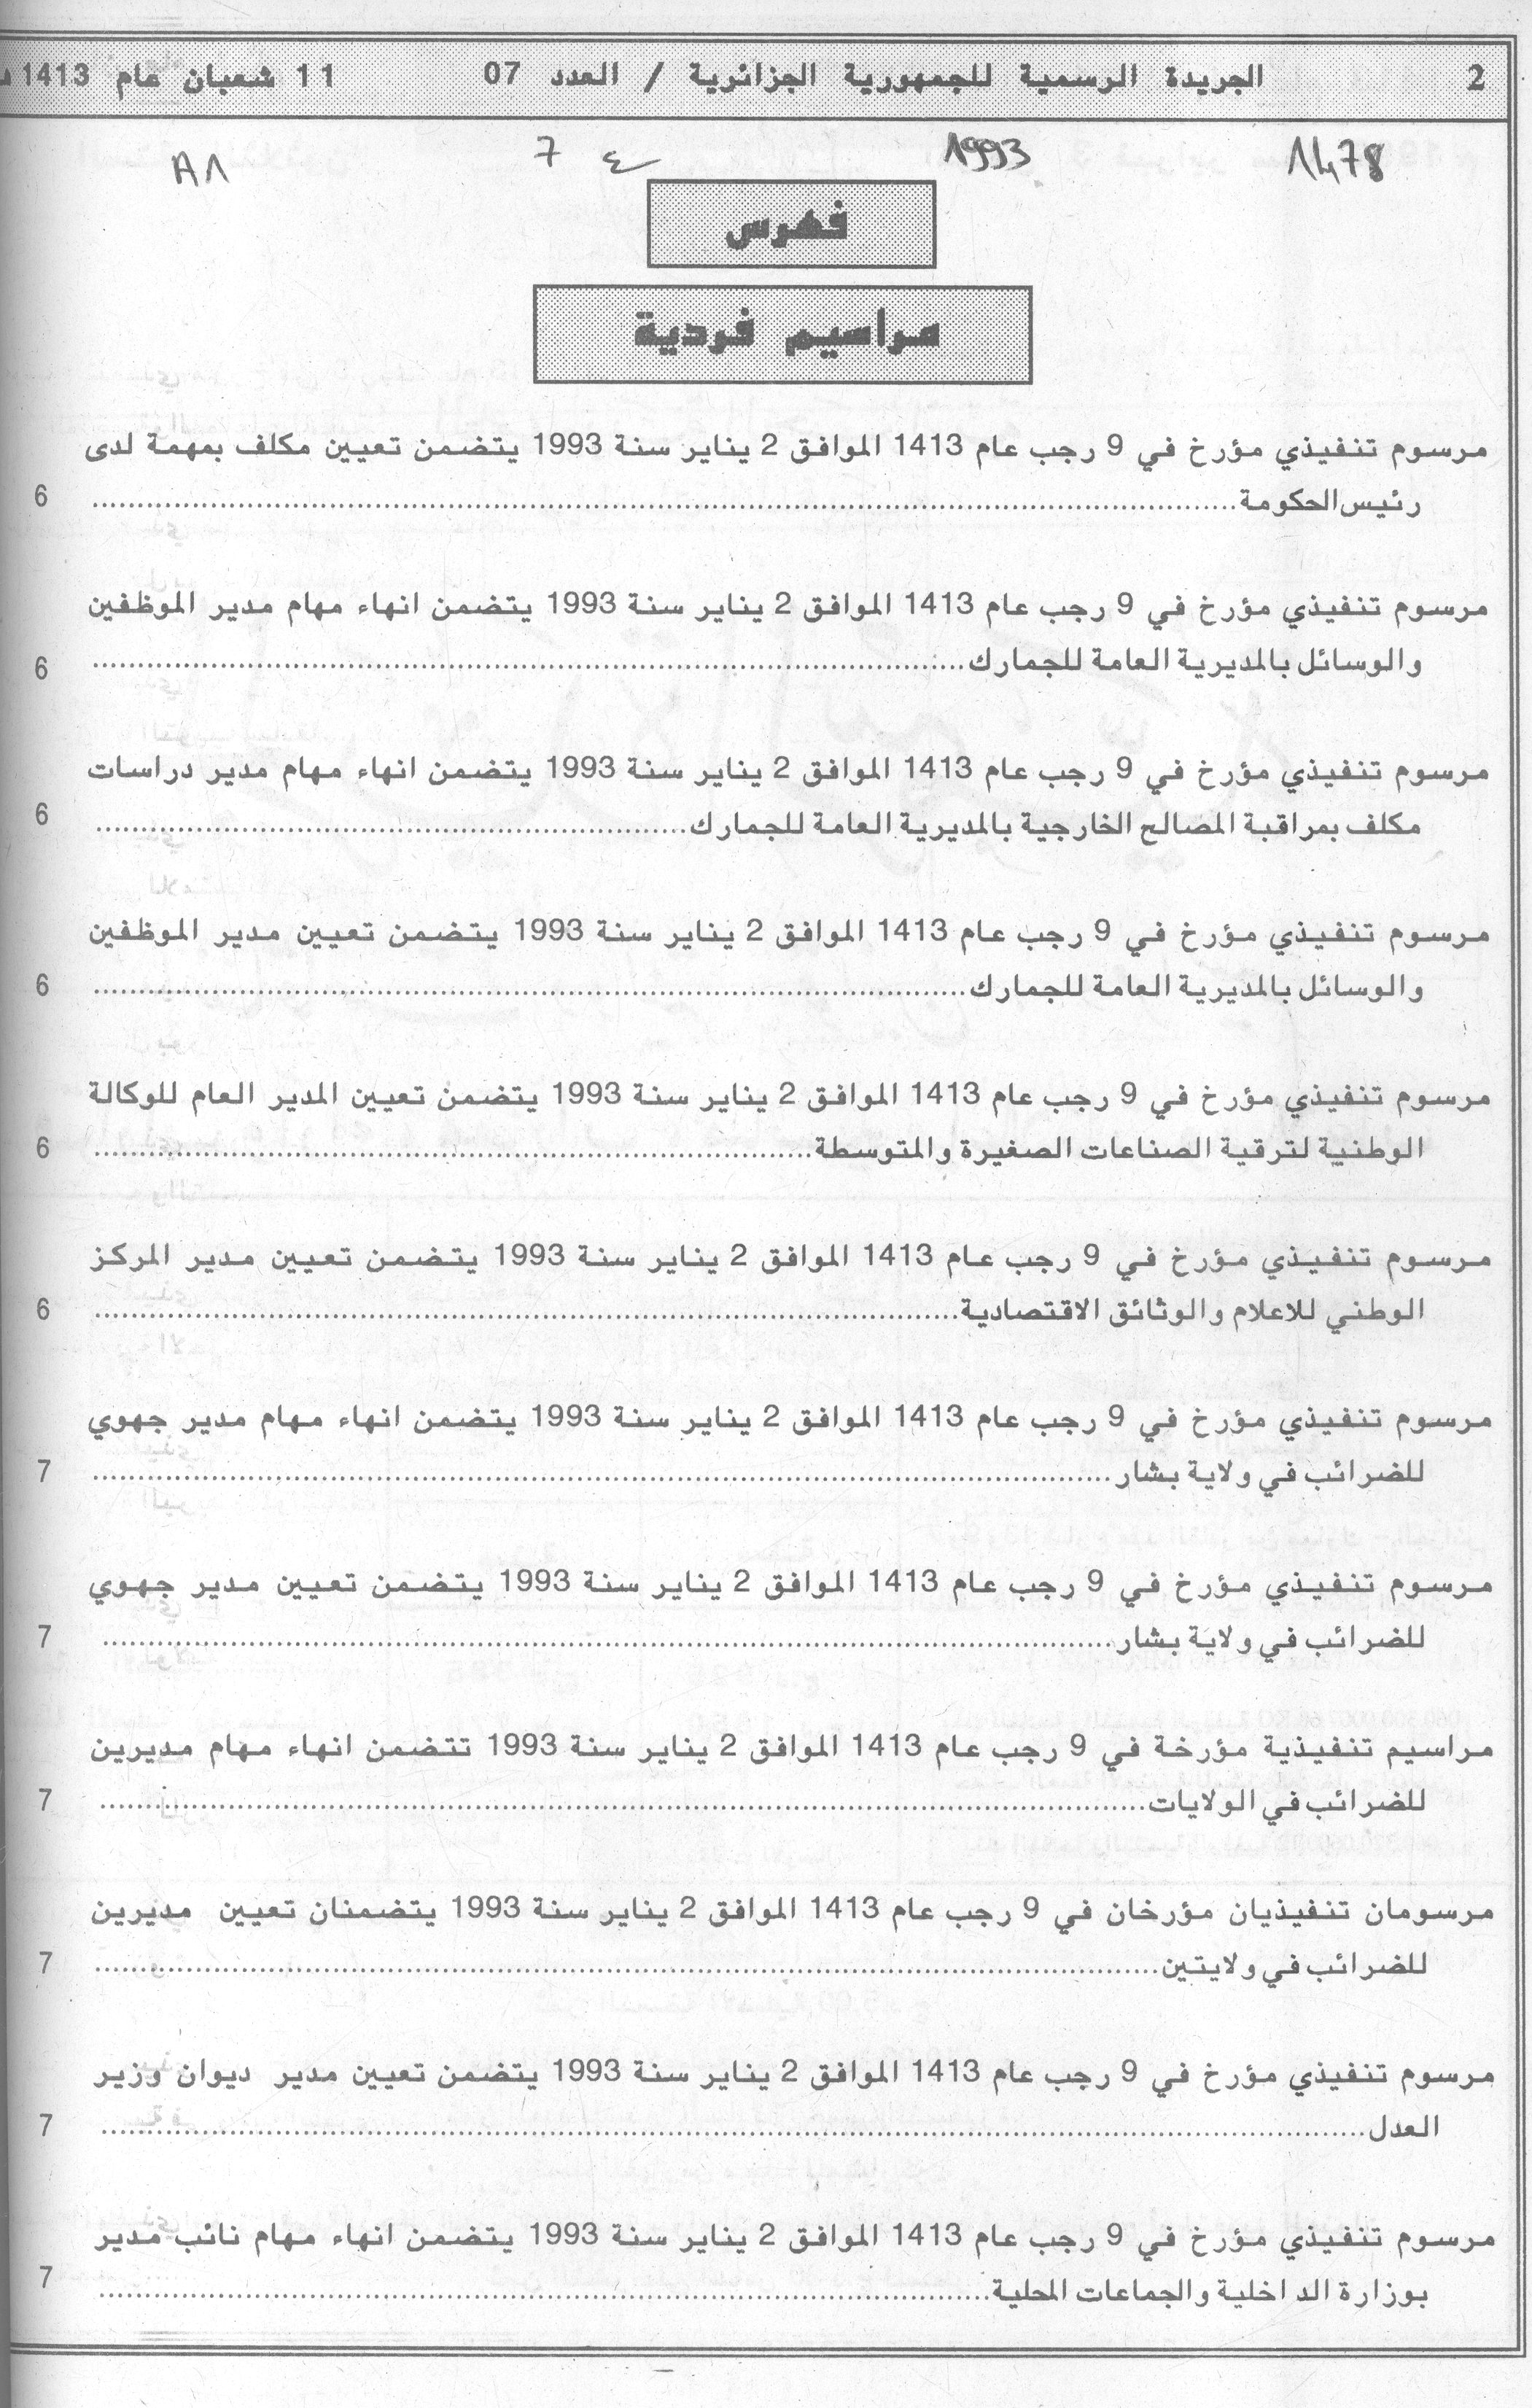 2 الجريدة الرسمية للجمهورية الجزائرية / العدد 07 11 شعبان عام 1413
1478 1993 ع 7 A1
فهرس
مراسيم فردية
مرسوم تنفيذي مؤرخ في 9 رجب عام 1413 الموافق 2 يناير سنة 1993 يتضمن تعيين مكلف بمهمة لدى
رئيس الحكومة........ 6
مرسوم تنفيذي مؤرخ في 9 رجب عام 1413 الموافق 2 يناير سنة 1993 يتضمن انهاء مهام مدير الموظفين
والوسائل بالمديرية العامة للجمارك........ 6
مرسوم تنفيذي مؤرخ في 9 رجب عام 1413 الموافق 2 يناير سنة 1993 يتضمن انهاء مهام مدير دراسات
مكلف بمراقبة المصالح الخارجية بالمديرية العامة للجمارك........ 6
مرسوم تنفيذي مؤرخ في 9 رجب عام 1413 الموافق 2 يناير سنة 1993 يتضمن تعيين مدير الموظفين
والوسائل بالمديرية العامة للجمارك........ 6
مرسوم تنفيذي مؤرخ في 9 رجب عام 1413 الموافق 2 يناير سنة 1993 يتضمن تعيين المدير العام للوكالة
الوطنية لترقية الصناعات الصغيرة والمتوسطة........ 6
مرسوم تنفيذي مؤرخ في 9 رجب عام 1413 الموافق 2 يناير سنة 1993 يتضمن تعيين مدير المركز
الوطني للاعلام والوثائق الاقتصادية........ 6
مرسوم تنفيذي مؤرخ في 9 رجب عام 1413 الموافق 2 يناير سنة 1993 يتضمن انهاء مهام مدير جهوي
للضرائب في ولاية بشار........ 7
مرسوم تنفيذي مؤرخ في 9 رجب عام 1413 الموافق 2 يناير سنة 1993 يتضمن تعيين مدير جهوي
للضرائب في ولاية بشار........ 7
مراسيم تنفيذية مؤرخة في 9 رجب عام 1413 الموافق 2 يناير سنة 1993 تتضمن انهاء مهام مديرين
للضرائب في الولايات........ 7
مرسومان تنفيذيان مؤرخان في 9 رجب عام 1413 الموافق 2 يناير سنة 1993 يتضمنان تعيين مديرين
للضرائب في ولايتين........ 7
مرسوم تنفيذي مؤرخ في 9 رجب عام 1413 الموافق 2 يناير سنة 1993 يتضمن تعيين مدير ديوان وزير
العدل........ 7
مرسوم تنفيذي مؤرخ في 9 رجب عام 1413 الموافق 2 يناير سنة 1993 يتضمن انهاء مهام نائب مدير
بوزارة الداخلية والجماعات المحلية........ 7